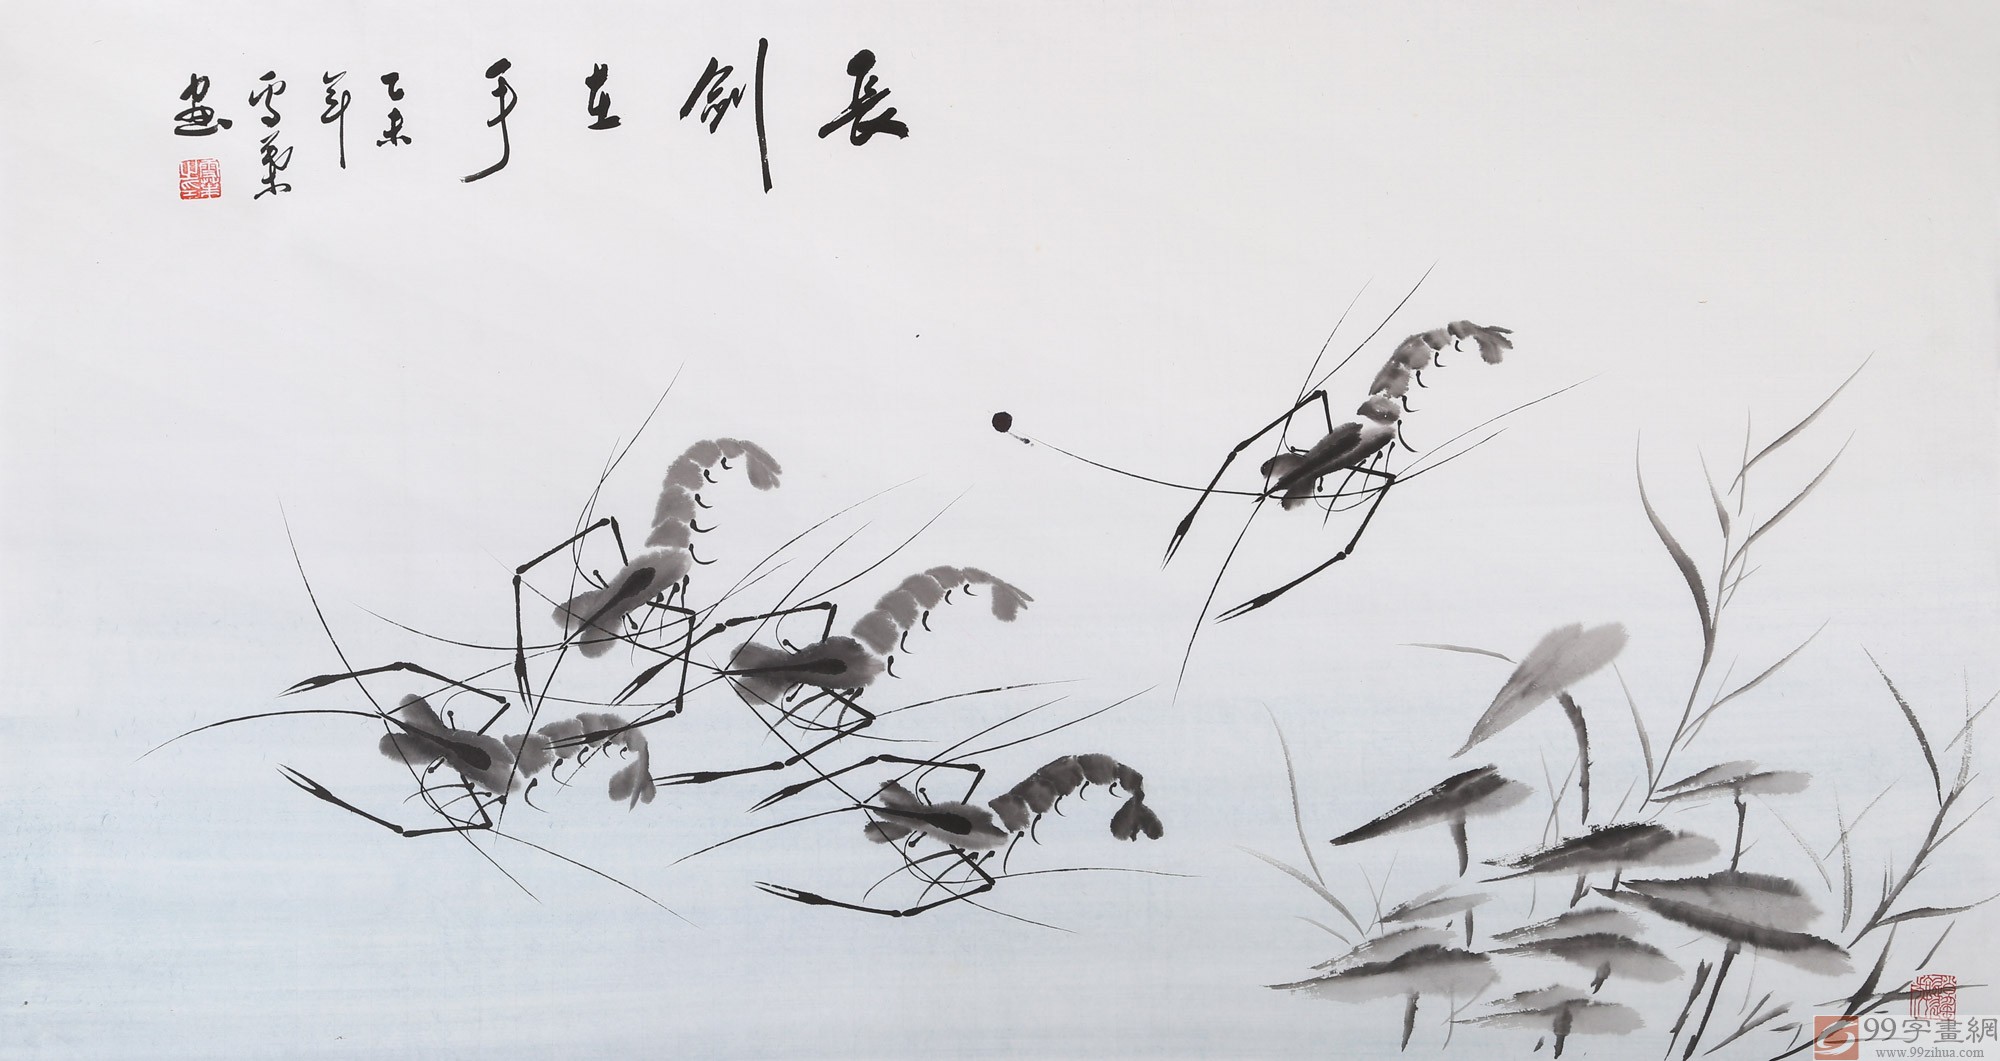 長劍在手
乙未
年
雪藥
畫
99字畫網
www.99zihua.com